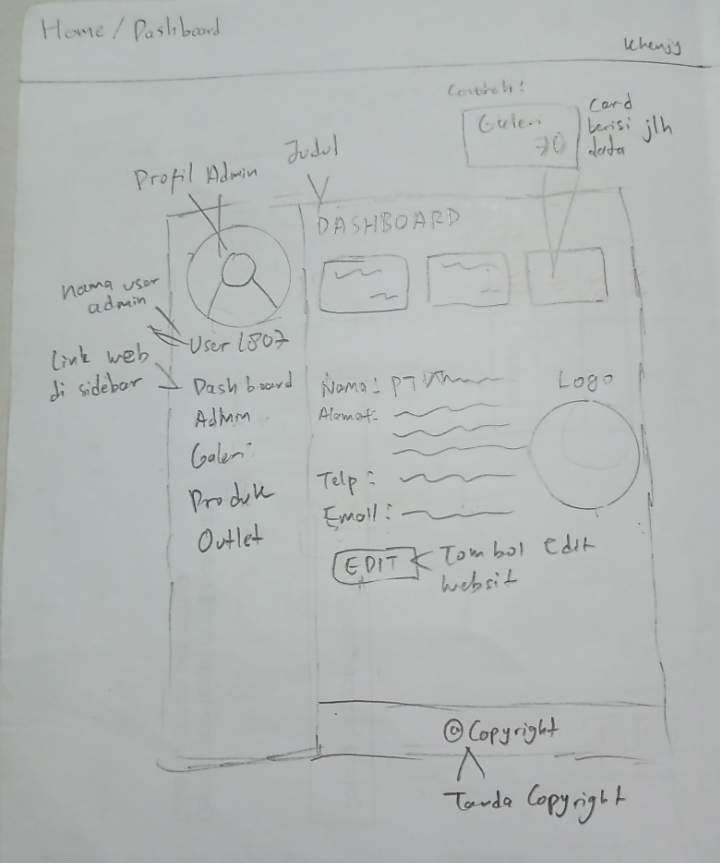 Home / Dashboard
Khenjy
Contoh:
Galeri
70
Card
berisi jlh
data
Judul
Profil Admin
DASHBOARD
nama user
admin
User 1807
Link web
di sidebar
Dashboard
Admin
Galeri
Produk
Outlet
Nama: PT
Alamat:
Telp:
Email:
Logo
EDIT
Tombol edit
websit
© Copyright
Tanda Copyright